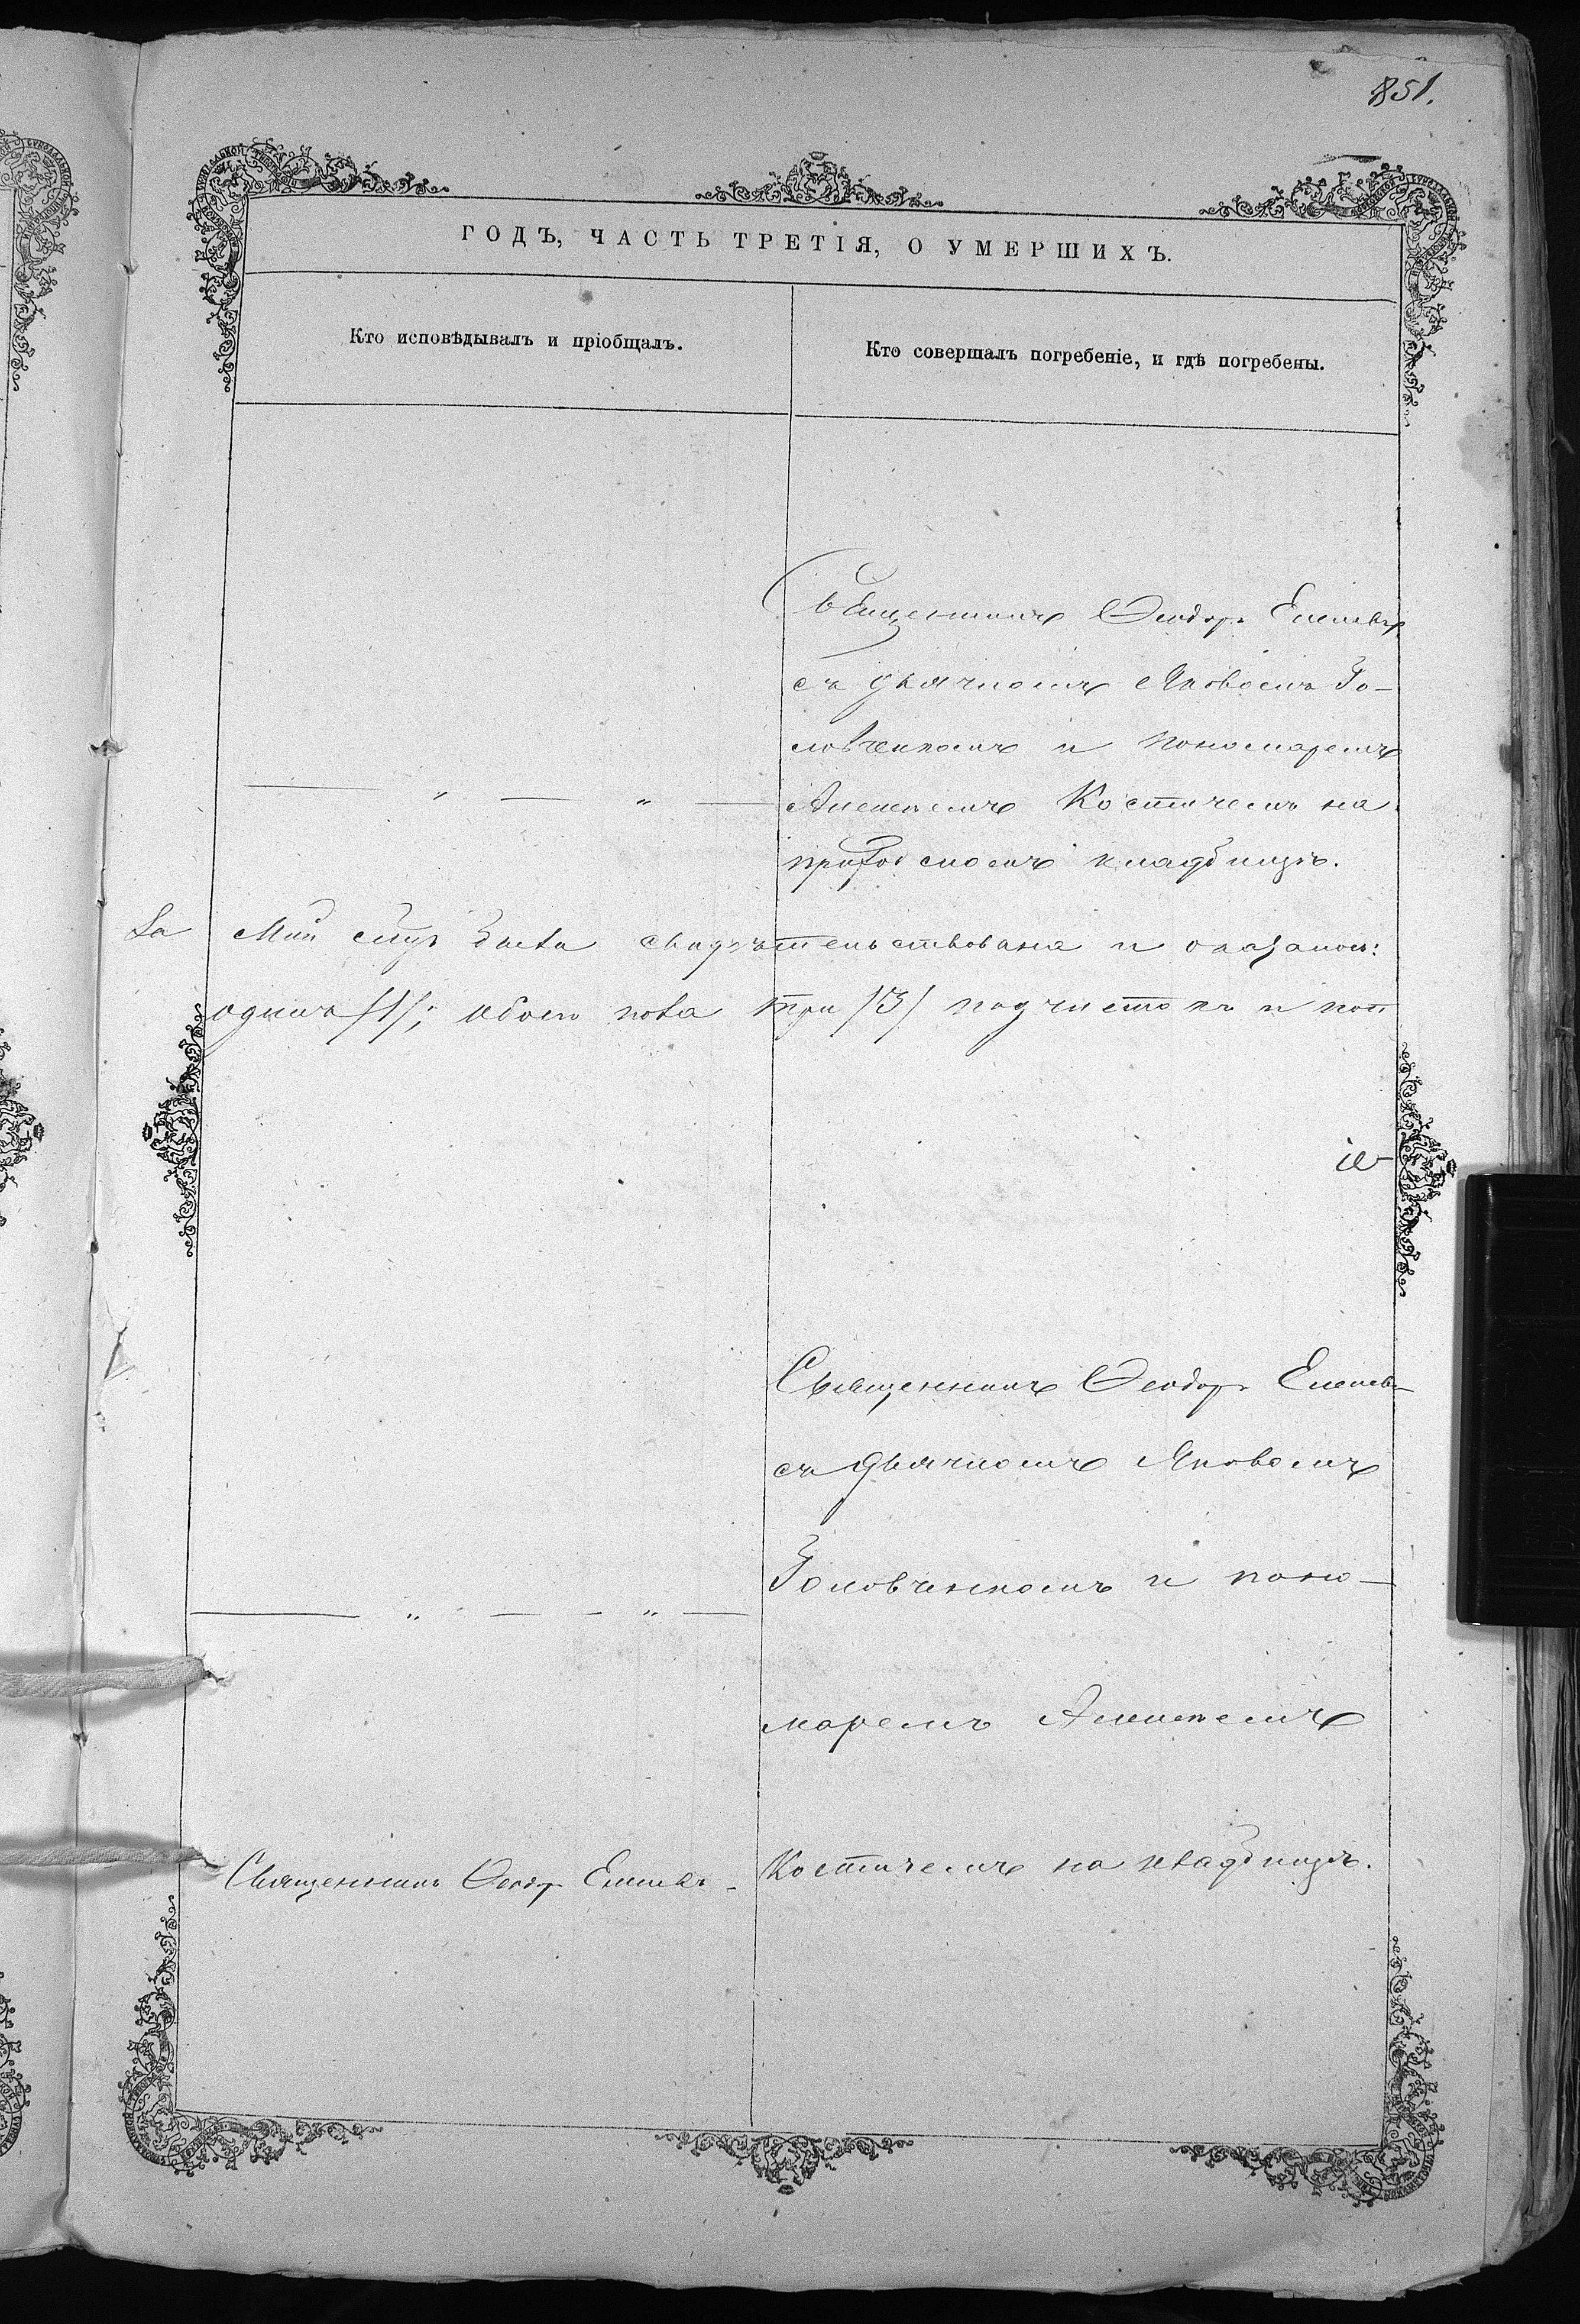 851.
ГОДЪ, ЧАСТЬ ТРЕТІЯ, О УМЕРШИХЪ.
Кто исповѣдывалъ и пріобщалъ.
Кто совершалъ погребеніе, и гдѣ погребены.
Священникъ Ѳеодоръ
съ дьячкомъ Яковомъ Го-
ловченкомъ и пономаремъ
Алексѣемъ Костичемъ на
приходскомъ кладбищѣ.
За Май была свидѣтельствована и оказалось:
одинъ /1/; обоего пола три /3/ подчистокъ и
Священникъ Ѳеодоръ
съ дьячкомъ Яковомъ
Головченкомъ и поно-
маремъ Алексѣемъ
Костичемъ на кладбищѣ.
Священникъ Ѳеодоръ